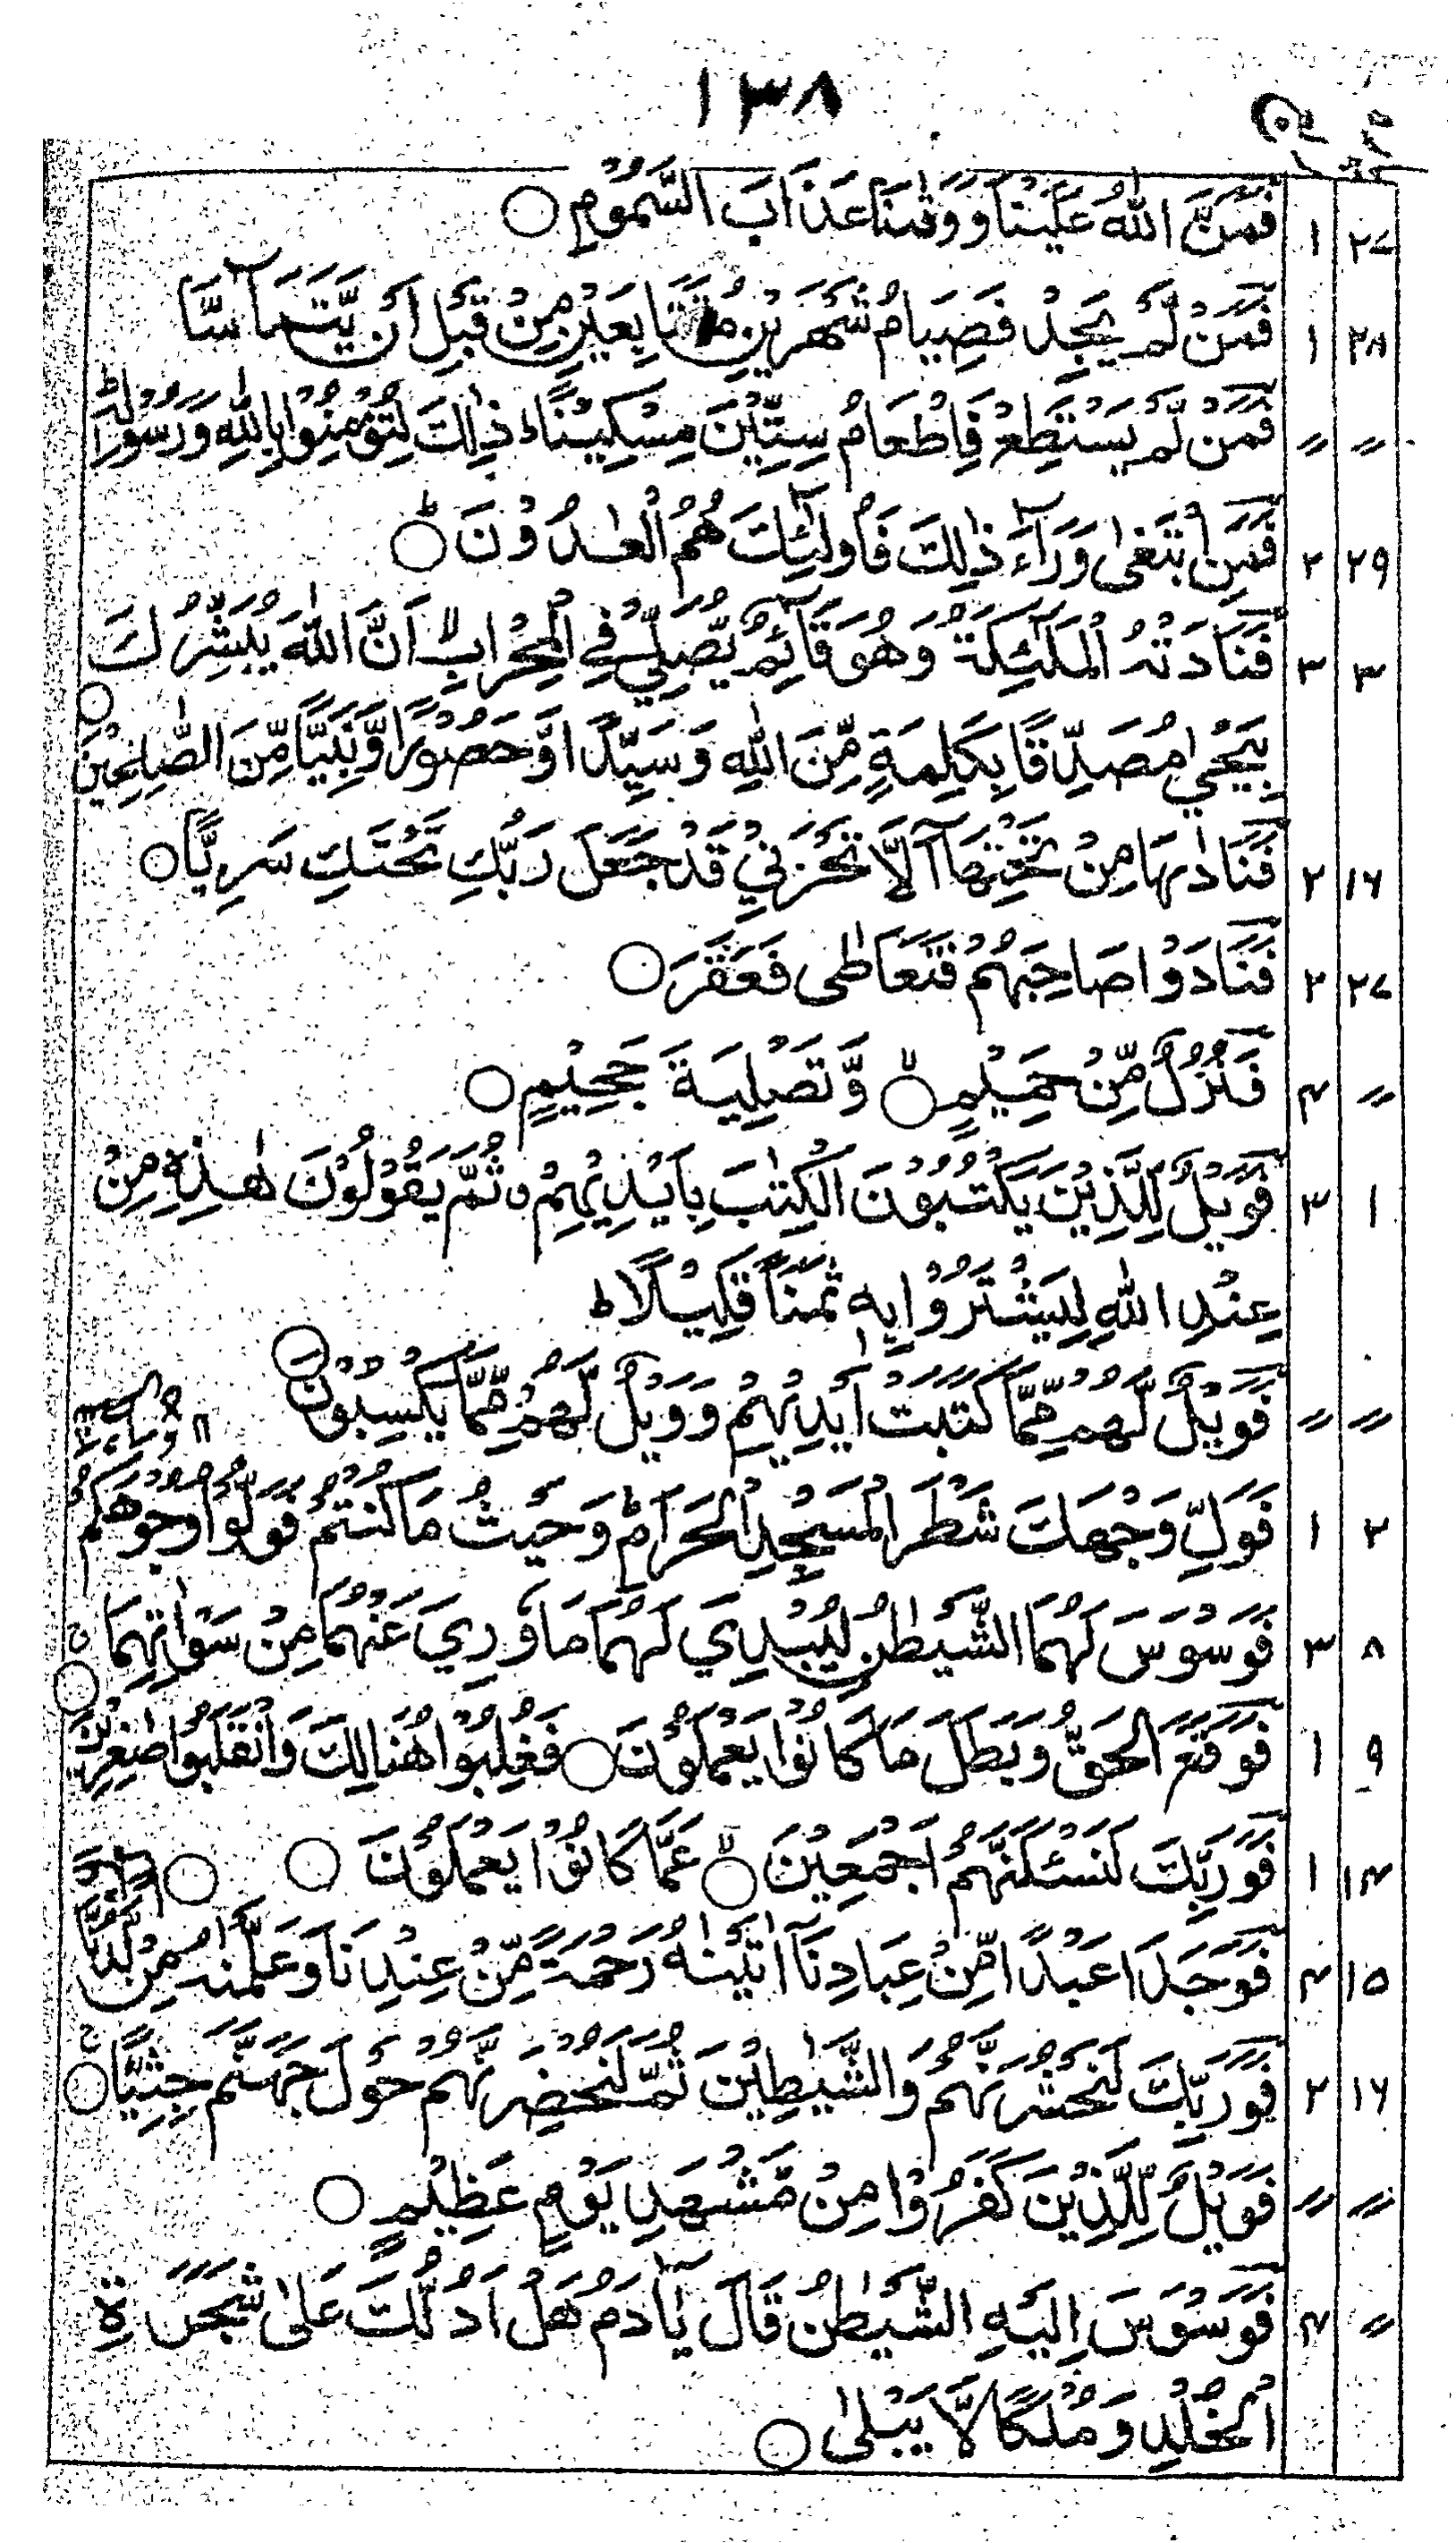 ١٣٨
٢٧ ١ فَمَنَّ اللّٰهُ عَلَيْنَا وَوَقٰىنَا عَذَابَ السَّمُوْمِ ○
٢٨ ١ فَمَنْ لَّمْ يَجِدْ فَصِيَامُ شَهْرَيْنِ مُتَتَابِعَيْنِ مِنْ قَبْلِ اَنْ يَّتَمَآسَّا
〃 〃 فَمَنْ لَّمْ يَسْتَطِعْ فَاِطْعَامُ سِتِّيْنَ مِسْكِيْنًا ذٰلِكَ لِتُؤْمِنُوْا بِاللّٰهِ وَرَسُوْلِهٖ ط
٢٩ ٢ فَمَنِ ابْتَغٰى وَرَآءَ ذٰلِكَ فَاُولٰٓئِكَ هُمُ الْعٰدُوْنَ ○ ط
٣ ٣ فَنَادَتْهُ الْمَلٰٓئِكَةُ وَهُوَ قَآئِمٌ يُّصَلِّيْ فِي الْمِحْرَابِ لا اَنَّ اللّٰهَ يُبَشِّرُكَ
بِيَحْيٰ مُصَدِّقًا بِكَلِمَةٍ مِّنَ اللّٰهِ وَسَيِّدًا وَّحَصُوْرًا وَّنَبِيًّا مِّنَ الصّٰلِحِيْنَ ○
١٦ ٢ فَنَادٰىهَا مِنْ تَحْتِهَآ اَلَّا تَحْزَنِيْ قَدْ جَعَلَ رَبُّكِ تَحْتَكِ سَرِيًّا ○
٢٧ ٢ فَنَادَوْا صَاحِبَهُمْ فَتَعَاطٰى فَعَقَرَ ○
〃 ٣ فَنُزُلٌ مِّنْ حَمِيْمٍ ○ لا وَّتَصْلِيَةُ جَحِيْمٍ ○
١ ٣ فَوَيْلٌ لِّلَّذِيْنَ يَكْتُبُوْنَ الْكِتٰبَ بِاَيْدِيْهِمْ ثُمَّ يَقُوْلُوْنَ هٰذَا مِنْ
عِنْدِ اللّٰهِ لِيَشْتَرُوْا بِهٖ ثَمَنًا قَلِيْلًا ط
〃 〃 فَوَيْلٌ لَّهُمْ مِّمَّا كَتَبَتْ اَيْدِيْهِمْ وَوَيْلٌ لَّهُمْ مِّمَّا يَكْسِبُوْنَ ○
٢ ١ فَوَلِّ وَجْهَكَ شَطْرَ الْمَسْجِدِ الْحَرَامِ ط وَحَيْثُ مَا كُنْتُمْ فَوَلُّوْا وُجُوْهَكُمْ
٨ ٣ فَوَسْوَسَ لَهُمَا الشَّيْطٰنُ لِيُبْدِيَ لَهُمَا مَاوٗرِيَ عَنْهُمَا مِنْ سَوْاٰتِهِمَا
٩ ١ فَوَقَعَ الْحَقُّ وَبَطَلَ مَا كَانُوْا يَعْمَلُوْنَ ○ فَغُلِبُوْا هُنَالِكَ وَانْقَلَبُوْا صٰغِرِيْنَ ○
١٤ ١ فَوَرَبِّكَ لَنَسْئَلَنَّهُمْ اَجْمَعِيْنَ ○ لا عَمَّا كَانُوْا يَعْمَلُوْنَ ○
١٥ ٤ فَوَجَدَا عَبْدًا مِّنْ عِبَادِنَآ اٰتَيْنٰهُ رَحْمَةً مِّنْ عِنْدِنَا وَعَلَّمْنٰهُ مِنْ لَّدُنَّا ○
١٦ ٢ فَوَرَبِّكَ لَنَحْشُرَنَّهُمْ وَالشَّيٰطِيْنَ ثُمَّ لَنُحْضِرَنَّهُمْ حَوْلَ جَهَنَّمَ جِثِيًّا ○ ج
〃 〃 فَوَيْلٌ لِّلَّذِيْنَ كَفَرُوْا مِنْ مَّشْهَدِ يَوْمٍ عَظِيْمٍ ○
〃 ٤ فَوَسْوَسَ اِلَيْهِ الشَّيْطٰنُ قَالَ يٰٓاٰدَمُ هَلْ اَدُلُّكَ عَلٰى شَجَرَةِ
الْخُلْدِ وَمُلْكٍ لَّا يَبْلٰى ○